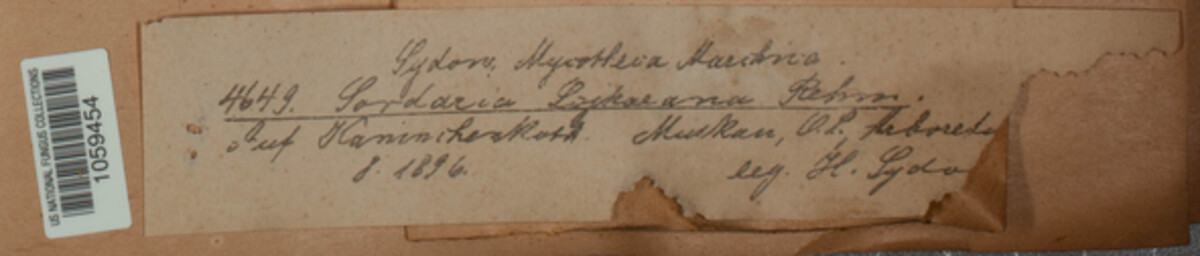 US NATIONAL FUNGUS COLLECTIONS
1059454
Sydow, Mycotheca Marchica.
4649. Sordaria Lojkaeana Rehm.
Auf Kaninchenkoth. Muskau, O.L., Arboretu
8. 1896.
leg. H. Sydo